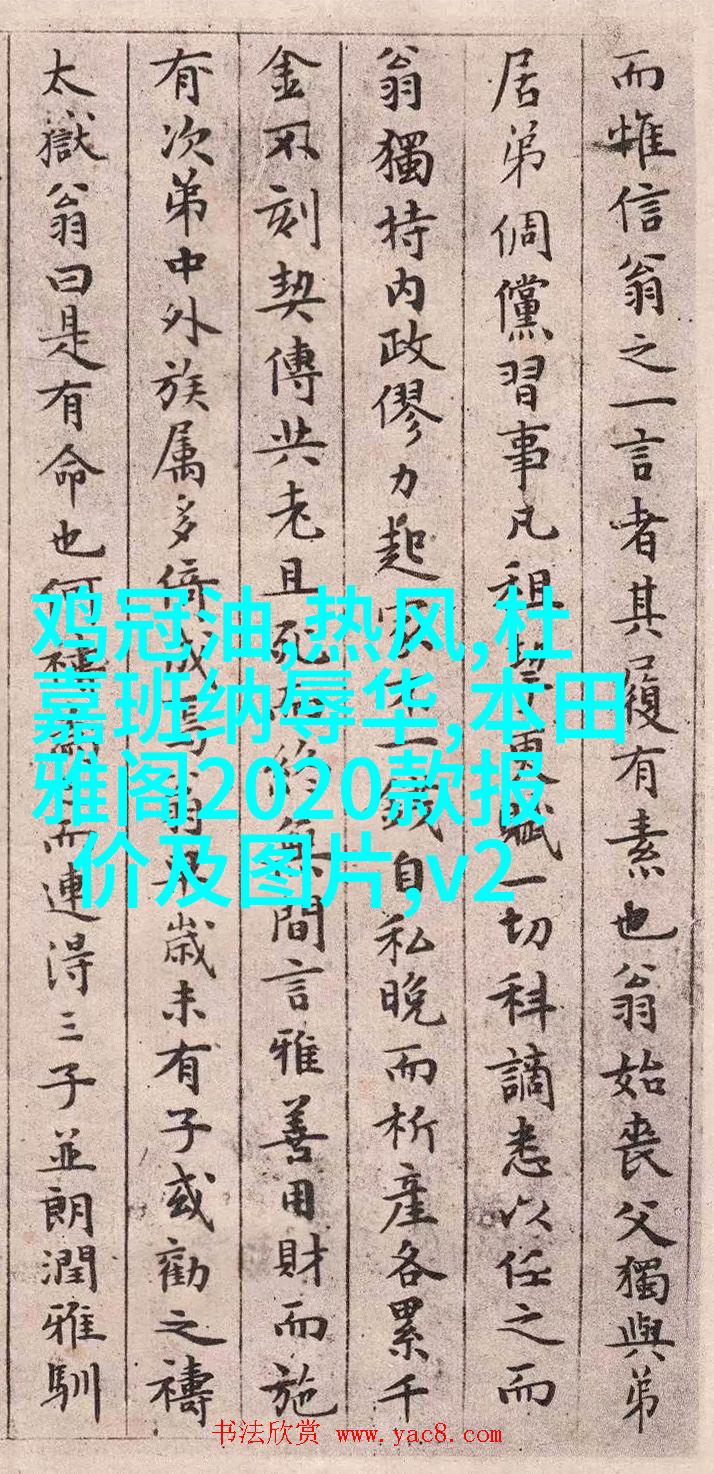 而惟信翁之一言者其履有素也翁始喪父獨與弟
居弟倜儻習事凡租更賦一切科謫悉以任之而
翁獨持内政僇力起家不一錢自私晚而析產各累千
金不刻契傳共老且死而終無間言雅善用財而施
有次弟中外族属多倚成焉翁早歲未有子或勸之禱
太嶽翁曰是有命也何禱而連得三子並朗潤雅馴
鸡冠油,热风,杜
嘉班纳辱华,本田
雅阁2020款报
价及图片,v2
书法欣赏 www.yac8.com